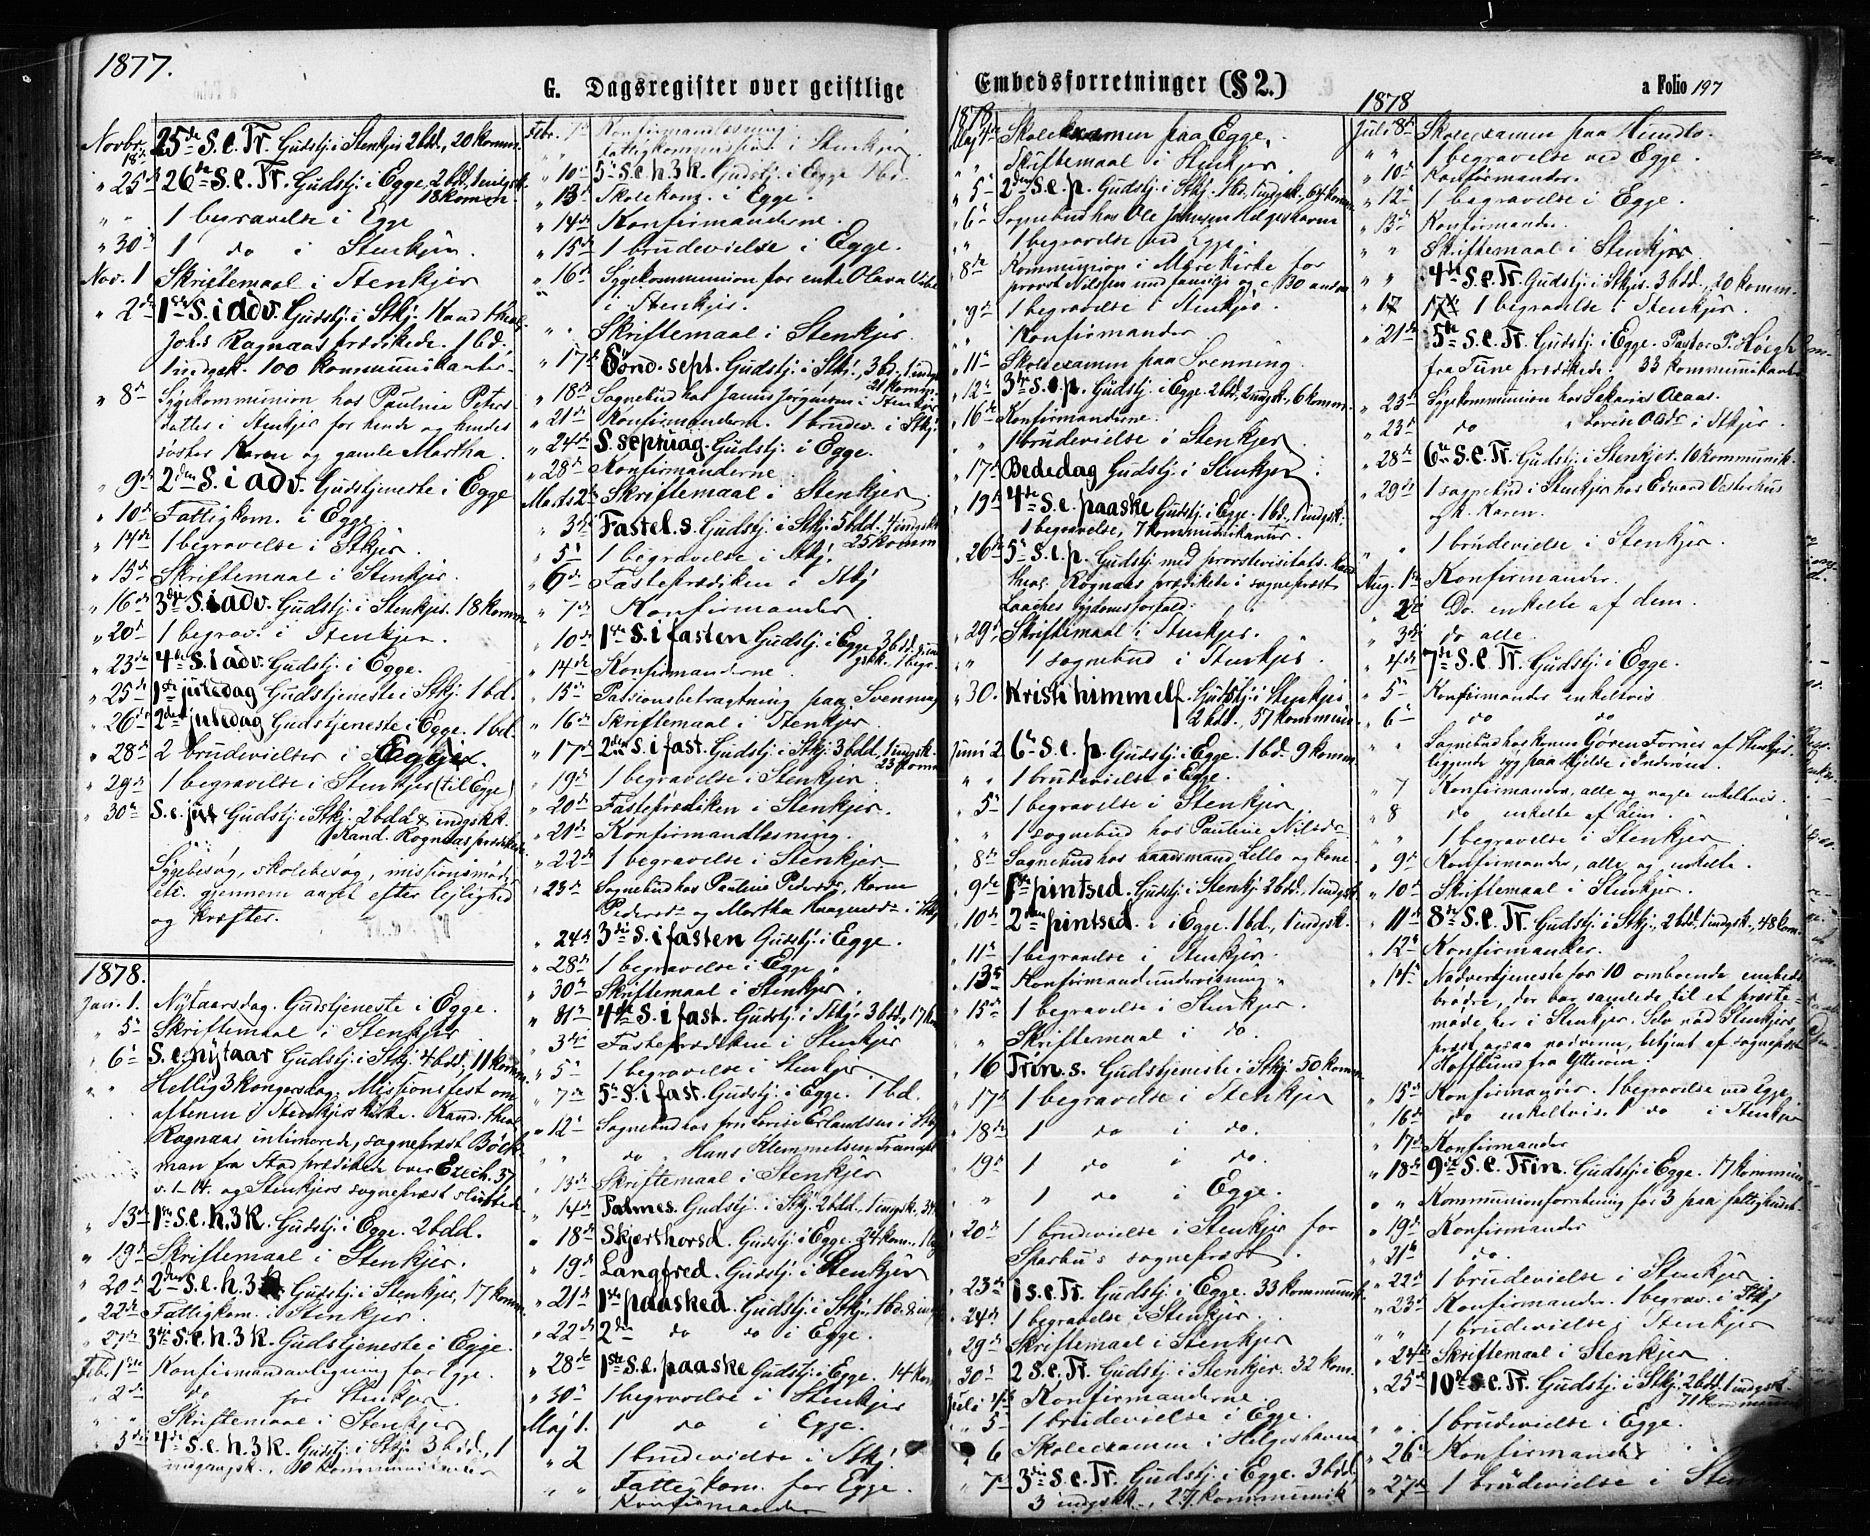 1877.
G. Dagsregister over geistlige
Novbr. 18de 25de S.e.Tr. Gudstj. i Stenkjer 2 bd., 20 komm.
" 25 26de S.e.Tr. Gudstj. i Egge, 2 bd., 1 indgsk. 18 komm.
" " 1 begravelse i Egge
" 30 1 do i Stenkjer
Nov. 1 Skriftemaal i Stenkjer
" 2de 1ste S. i adv. Gudstj. i Stkj. Kand. theol.
Johs Ragnaas prædikede. 1 bd.,
1 indgsk. 100 kommunikanter.
" 8de Sygekommunion hos Pauline Peters-
datter i Stenkjer for hende og hendes
søster Karen og gamle Martha.
" 9de 2den S. i adv. Gudstjeneste i Egge
" 10de Fattigkom. i Egge.
" 14de 1 begravelse i Stkjer.
" 15de Skriftemaal i Stenkjer.
" 16de 3die S. i adv. Gudstj. i Stenkjer. 18 komm.
" 20de 1 begrav. i Stenkjer.
" 23de 4de S. i adv. Gudstj. i Egge.
" 25de 1ste juledag Gudstjeneste i Stkj. 1 bd.
" 26de 2den juledag Gudstjeneste i Egge. 1 bd.
" 28de 2 brudevielser i Egge.
" 29de 1 begravelse i Stenkjer (til Egge)
" 30te S.e. jul Gudstj. i Stkj. 2 bdd & indgskk.
Kand. Rognaas prædikede.
Sygebesøg, skolebesøg, missionsmøder
etc. gjennem aaret efter leilighed
og kræfter.
1878.
Jan. 1. Nytaarsdag. Gudstjeneste i Egge.
" 5te Skriftemaal i Stenkjer.
" 6te S.e. nytaar Gudstj. i Stkj. 4 bdd., 11 komm.
" " Hellig 3 kongersdag. Missionsfest om
aftenen i Stenkjers kirke. Kand. theol.
Rognaas intimerede, sognepræst Böck-
man fra Stod prædikede over Ezech. 37,
v. 1-14. og Stenkjers sognepræst sluttede
" 13de 1ste S.e.h.3k. Gudstj. i Egge. 2 bdd.
" 19de Skriftemaal i Stenkjer.
" 20de 2den S.e.h.3k. Gudstj. i Stenkjer, 17 komm.
" 22de Fattigkom. i Stenkjer.
" 27de 3die S.e.h.3k. Gudstjeneste i Egge.
Feb. 1ste Konfirmandavlæsning for Egge.
" 2de do for Stenkjer.
" " Skriftemaal i Stenkjer
" 3die 4de S.e.h.3k. Gudstj. i Stkj. 3 bdd., 1
indgangsk., 10 kommunikanter
Febr. 7de Konfirmandlæsning
" " Fattigkommission i Stenkjer
" 10de 5te S.e.h.3k. Gudstj. i Egge 1 bd.
" 13de Skolekom. i Egge.
" 14de Konfirmanderne.
" 15de 1 brudevielse i Egge.
" 16de Sygekommunion for enke Olava Vibe
i Stenkjer.
" " Skriftemaal i Stenkjer.
" 17de Sönd. sept. Gudstj. i Stkj., 3 bd., 1 indgsk. 21 komm.
" 18de Sognebud hos Janus Jørgensen i Stenkjer
" 21de Konfirmanderne. 1 brudev. i Stkj.
" 24de S. septuag. Gudstj. i Egge.
" 28de Konfirmanderne
Marts 2de Skriftemaal i Stenkjer
" 3die Fastel. s. Gudstj. i Stkj. 5 bdd. 4 indgskk. 25 komm
" 5te 1 begravelse i Stkj.
" 6te Fasteprædiken i Stkj
" 7de Konfirmander
" 10de 1ste S. i fasten Gudstj. i Egge 3 bdd. 8 ind gskk. 1 begr.
" 14de Konfirmanderne
" 15de Passionsbetragtning paa Svenning
" 16de Skriftemaal i Stenkjer
" 17de 2den S. i fast. Gudstj. i Stkj. 3 bdd., 1 indgsk. 23 komm
" 19de 1 begravelse i Stenkjer
" 20de Fasteprædiken i Stenkjer.
" 21de Konfirmandlæsning.
" 22de 1 begravelse i Stenkjer
" 23de Sognebud hos Pauline Pedersdr, Karen
Pedersdr og Martha Haagensdr i Stkj
" 24de 3die S. i fasten Gudstj. i Egge.
" 28de 1 begravelse i Egge.
" 30te Skriftemaal i Stenkjer.
" 31te 4de S. i fast. Gudstj. i Stkj. 3 bdd., 17 ko
" 3die Fasteprædiken i Stenkjer
" 5te 1 begravelse i Stenkjer.
" 7de 5te S. i fast. Gudstj. i Egge. 1 bd.
" 12te Sognebud hos fru Lovise Erlandsen i Stkj
" " do " Hans Klemmetsen Tranaplad
" 13de Skriftemaal i Stenkjer
" 14de Palmes. Gudstj. i Stkj. 2 bdd., 1 indgsk. 34
" 18de Skjærthorsd. Gudstj. i Egge. 24 kom., 1 beg
" 19de Langfred. Gudstj. i Stenkjer
" 21de 1ste paasked. Gudstj. i Stkj. 1 bd. & ind
" 22de 2den do do i Egge.
" 28de 1ste S.e. paaske Gudstj. i Egge. 14 kom
" 30te 1 begravelse i Stenkjer
Maj 1. 1 do i Egge.
" 2 1 brudevielse i Stkj.
" " Fattigkom. for Egge.
Konfirmander
Embedsforretninger (§ 2.)
a Folio 197
1878
Maj 4de Skolexamen paa Egge.
" " Skriftemaal i Stenkjer
" 5te 2den S.e.p. Gudstj. i Stkj. 1 bd. 1 indgsk. 64 komm
" 6te Sognebud hos Ole Johnsen Helgeshavne
" 1 begravelse ved Egge.
" 8de Kommunion i Mære kirke for
provst Nilssen med familie og c. 130 andre
" 9de 1 begravelse i Stenkjer.
" Konfirmander
" 11te Skolexamen paa Svenning.
" 12te 3die S.e.p. Gudstj. i Egge. 2 bdd., 2 indgsk., 6 komm.
" 16de Konfirmanderne.
" 1 brudevielse i Stenkjer.
" 17de Bededag Gudstj. i Stenkjer
" 19de 4de S.e. paaske Gudstj. i Egge. 1 bd. 1 indgsk.
1 begravelse, 7 kommunikanter.
" 26de 5te S.e.p. Gudstj. med provstevisitats. kand.
theol. Rognaas prædikede i sognepræst
Laaches sygdomsforfald.
" 29de Skriftemaal i Stenkjer.
" " 1 sognebud i Stenkjer
" 30. Kristi himmelf. Gudstj. i Stenkjer
2 bdd., 57 kommun.
Juni 2 6te S.e.p. Gudstj. i Egge. 1 bd. 9 komm.
" " 1 brudevielse i Egge.
" 5te 1 begravelse i Stenkjer
" 1 sognebud hos Pauline Nilsdr
" 8de Sognebud hos baadsmand Lello og kone
" 9de 1ste pintsed. Gudstj. i Stenkj 2 bdd., 1 indgsk.
" 10de 2den pintsed. " i Egge. 1 bd., 1 indgsk.
" 11te 1 begravelse i Stenkjer.
" 13de Konfirmandundervisning "
" 15de 1 begravelse i Stenkjer
" Skriftemaal i do.
" 16 Trin. s. Gudstjeneste i Stkj. 50 komm.
" 17de 1 begravelse i Stenkjer
" 18de 1 do i do.
" 19de 1 do i do.
" 1 do i Egge.
" 20de 1 brudevielse i Stenkjer for
Sparbu's sognepræst.
" 23de 1 S.e.Tr. Gudstj. i Egge. 33 kommunik.
" 24de 1 begravelse i Stenkjer.
" 29de Skriftemaal i Stenkjer
" 30te 2 S.e.Tr. Gudstj. i Stenkjer. 32 kom.
Juli 4de Konfirmanderne.
" 5te 1 brudevielse i Egge.
" 6 Skolexamen i Helgeshavne
" 7de 3die S.e.Tr. Gudstj. i Egge. 3 bdd,
3 indgskk., 27 kommunik
1878
Juli 8de Skolexamen paa Humlo.
" " 1 begravelse ved Egge.
" 10de Konfirmander.
" 12te 1 begravelse i Egge.
" 13de Konfirmander.
" Skriftemaal i Stenkjer
" " 4de S.e.Tr. Gudstj. i Stkjer. 3 bdd., 20 komm.
" 17 1 begravelse i Stenkjer.
" 21de 5te S.e.Tr. Gudstj. i Egge. Pastor P. Høegh
fra Tune prædikede. 33 kommunikanter
" 23de Sygekommunion hos Sakarias Olaas.
" 23de do " Lovise Olsdr i Stkjer.
" 28de 6te S.e.Tr. Gudstj. i Stenkjer. 16 kommunik.
" 29de 1 sognebud i Stenkjer hos Edvard Vesterhus
og k. Karen.
" " 1 brudevielse i Stenkjer.
Aug. 1ste Konfirmander.
" 2de Do. enkelte af dem.
" 3die do alle.
" 4de 7de S.e.Tr. Gudstj. i Egge.
" 5te Konfirmander enkeltvis
" 6te do do
" Sognebud hos konen Gøren Fornes af Stenkjer
liggende syg paa Hjelde i Inderøen.
" 7 Konfirmander, alle og nogle enkeltvis.
" 8 do enkelte af dem.
" 1 begravelse i Stenkjer
" 9de Konfirmander, alle og enkelte.
" 10de Skriftemaal i Stenkjer.
" 11te 8de S.e.Tr. Gudstj. i Stkj., 2 bdd, 1 indgsk., 48 kom.
" 12te Konfirmander.
" 14de Nadvertjeneste for 10 omboende embeds-
brødre, der var samlede til et præste-
møde her i Stenkjer. Selv nød Stenkjers
præst ogsaa nadveren, betjent af sognepræst
Hofflund fra Ytterøen.
" 15de Konfirmander. 1 begravelse ved Egge,
" 16de do enkeltvis. 1 do i Stenkjer
" 17de Konfirmander
" 18de 9de S.e.Trin. Gudstj. i Egge. 17 kommun
" " Kommunionforretning for 3 paa fattighuset.
" 19de Konfirmander
" 21de do.
" 22de 1 brudevielse i Stenkjer
" 23de Konfirmander. 1 begrav. i Stkj
" " 1 brudevielse i Stenkjer
" 24de Skriftemaal i Stenkjer
" 25de 10de S.e.Tr. Gudstj. i Stkj. 2 bdd. 1 indgsk.
71 kommun
" 1 brudevielse i Egge.
" 26te Konfirmander
" 27de 1 brudevielse i Sten